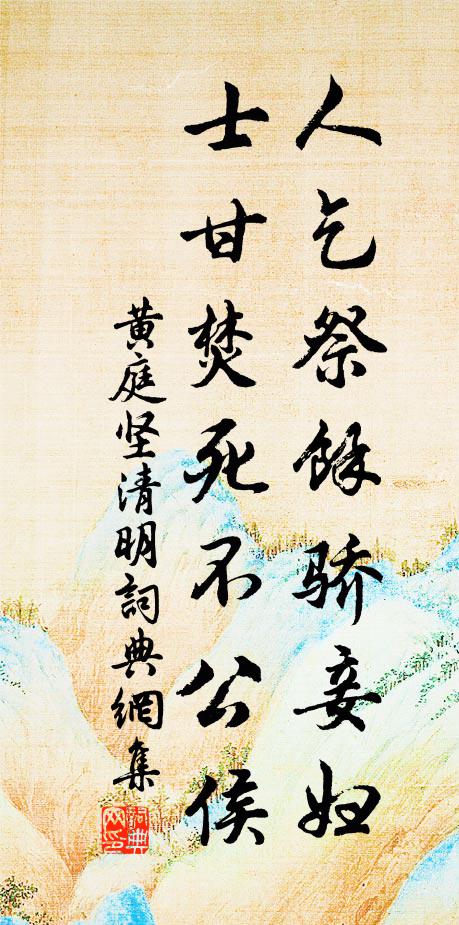 人乞祭馀骄妾妇
士甘焚死不公侯
黄庭坚清明詞典網集
詞典網印